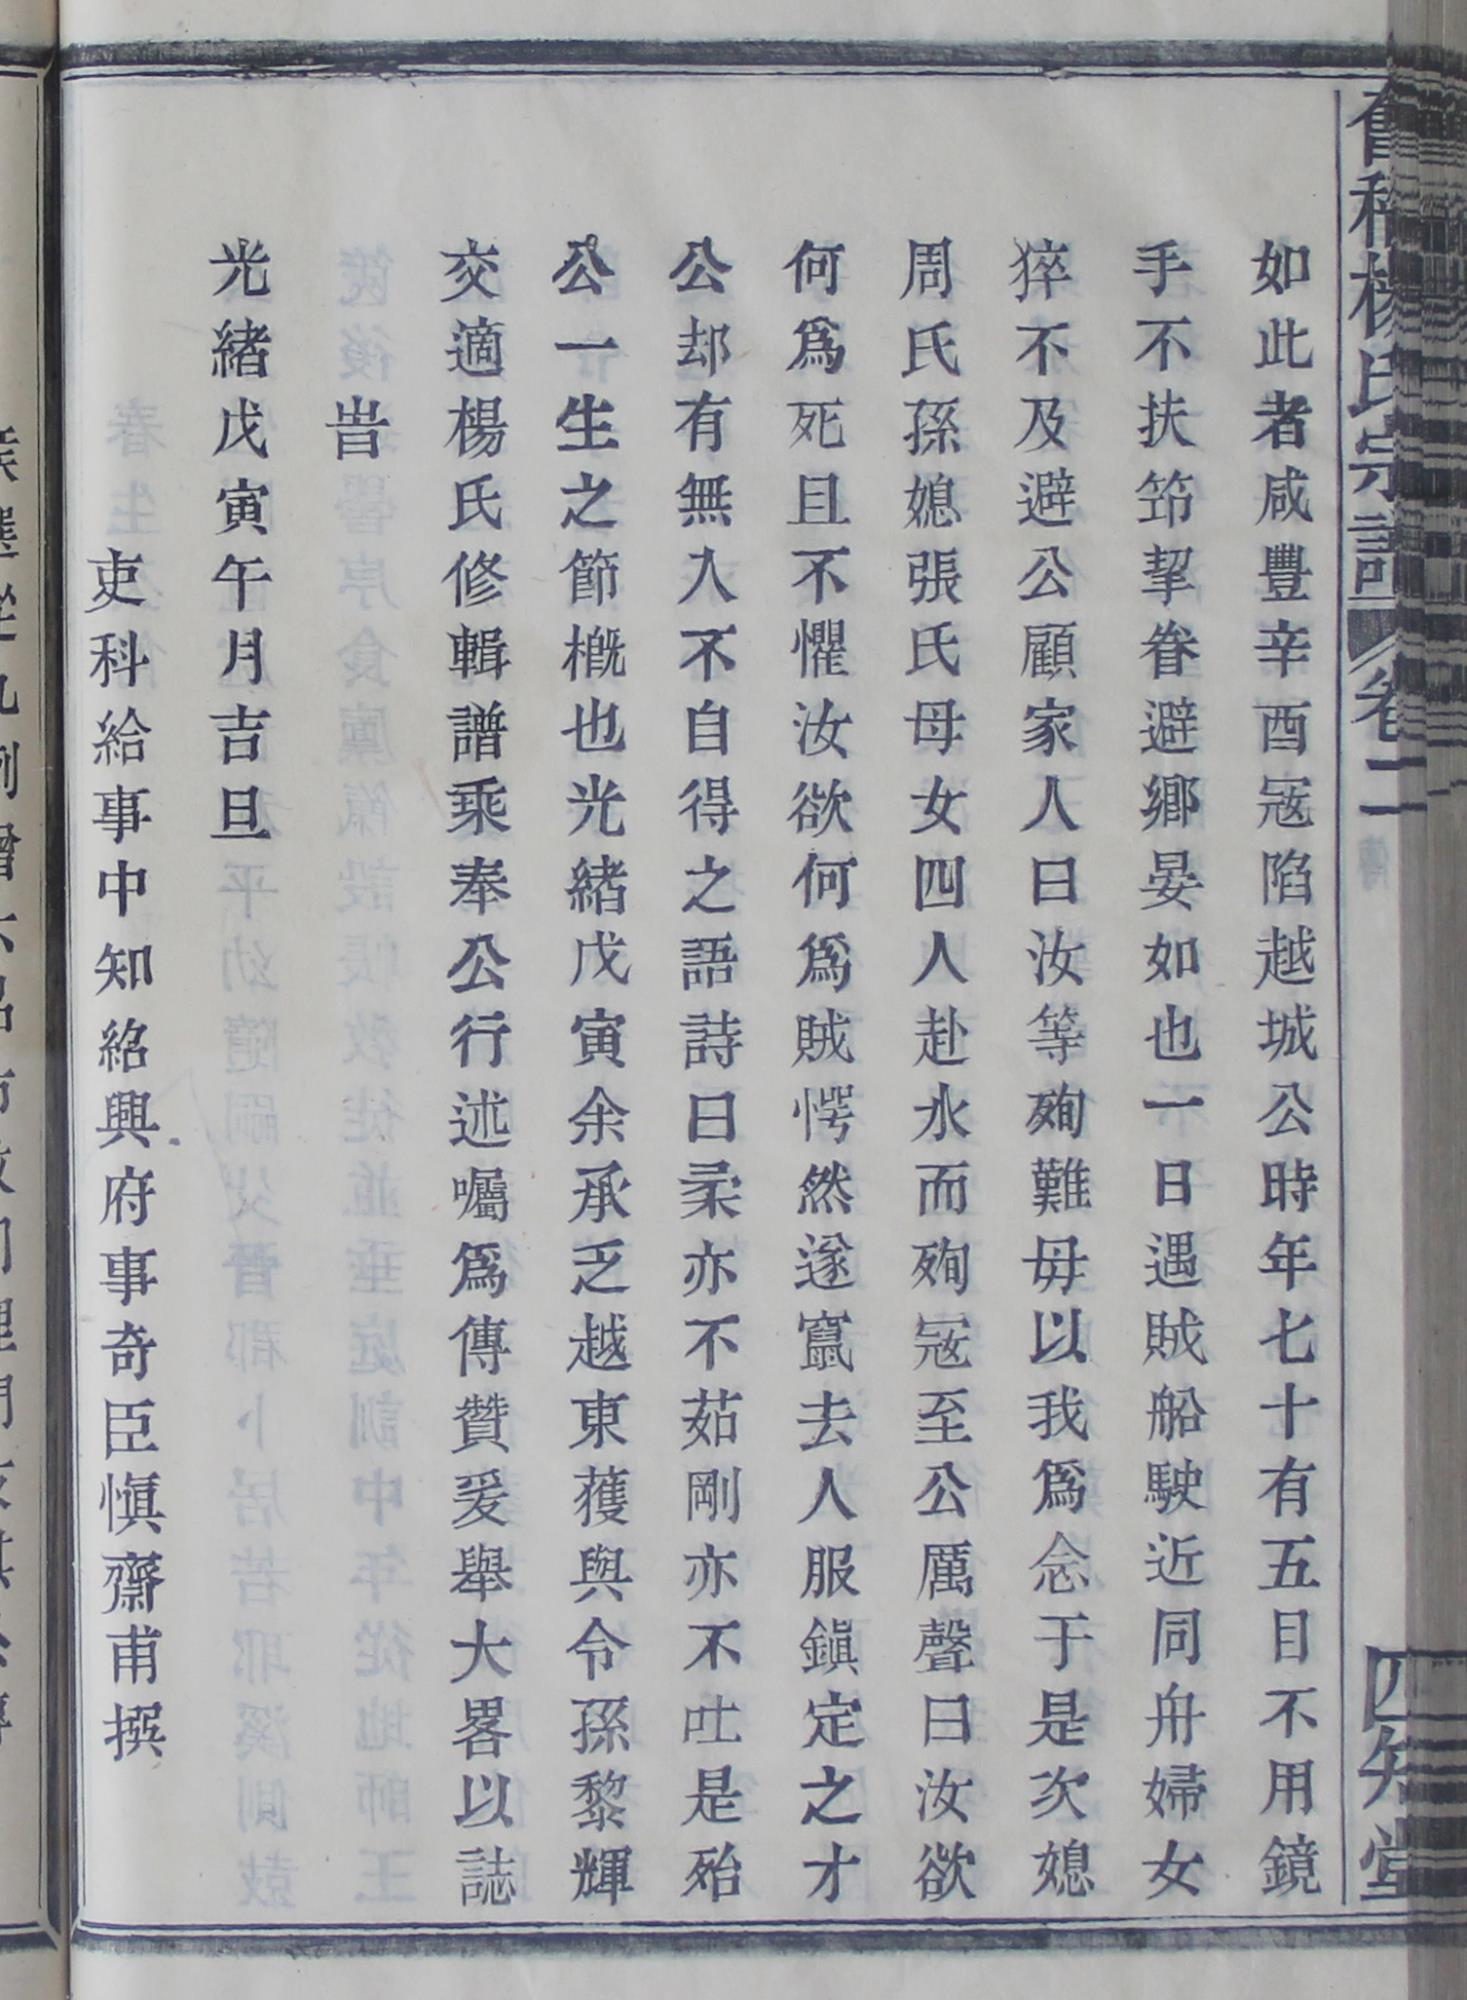 會稽楊氏宗譜 卷二 傳 四知堂
如此者咸豐辛酉寇陷越城公時年七十有五目不用鏡
手不扶笻挈眷避鄉晏如也一日遇賊船駛近同舟婦女
猝不及避公顧家人曰汝等殉難毋以我爲念于是次媳
周氏孫媳張氏母女四人赴水而殉寇至公厲聲曰汝欲
何爲死且不懼汝欲何爲賊愕然遂竄去人服鎭定之才
公却有無入不自得之語詩曰柔亦不茹剛亦不吐是殆
公一生之節槪也光緒戊寅余承乏越東獲與令孫黎輝
交適楊氏修輯譜乘奉公行述囑爲傳贊爰舉大畧以誌
旹
光緒戊寅午月吉旦
吏科給事中知紹興府事奇臣愼齋甫撰